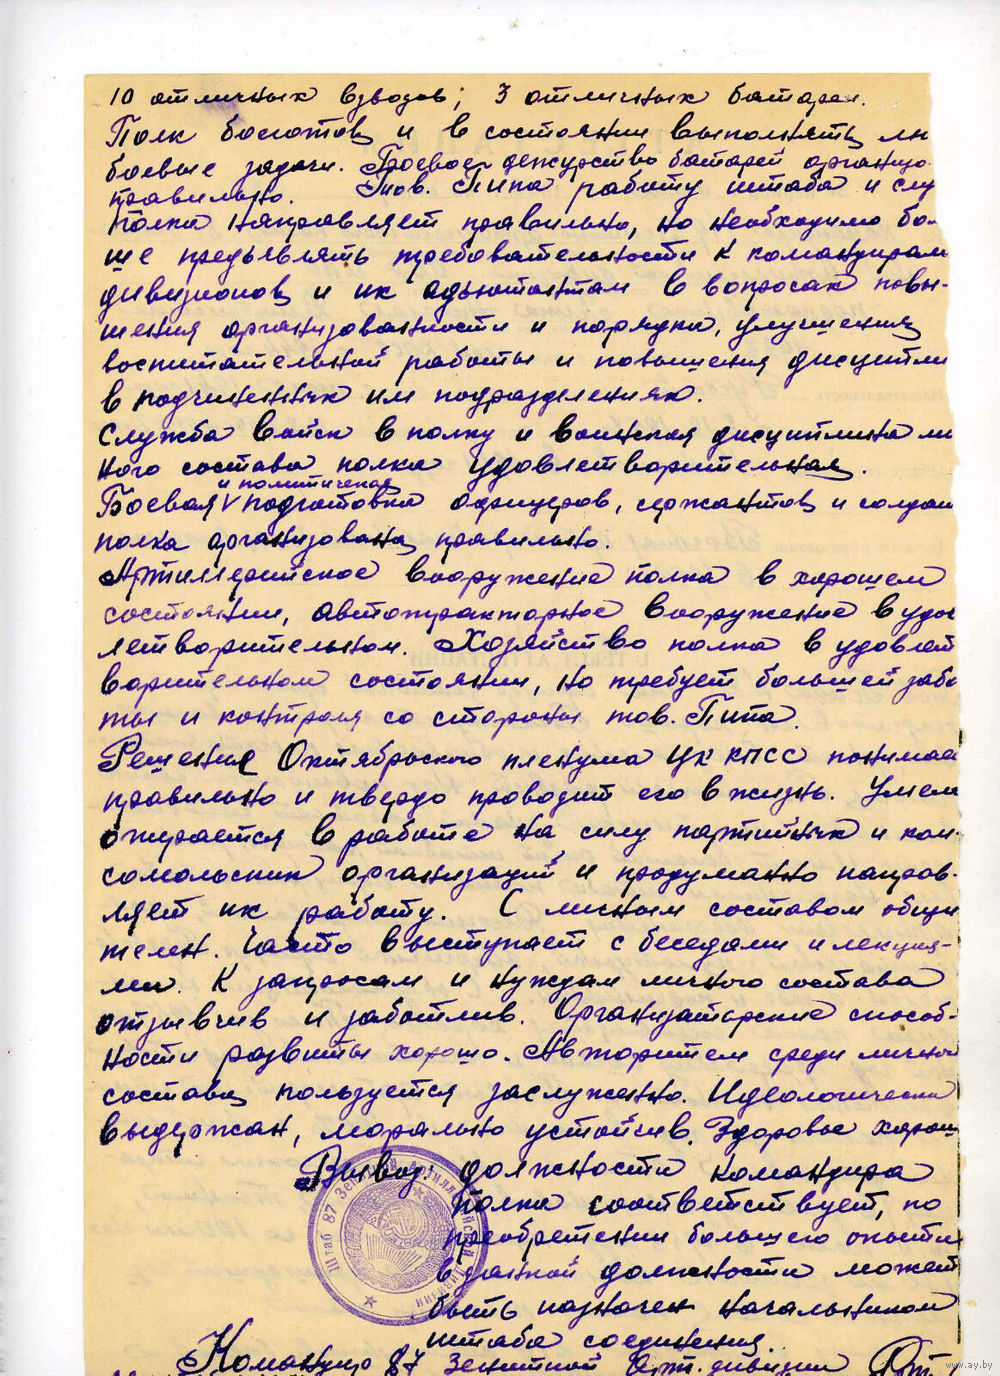 10 отличных взводов, 3 отличных батареи.
Полк боеготов и в состоянии выполнять лю
боевые задачи. Боевое дежурство батарей организо.
правильно. Тов. Пипа работу штаба и слу
полка направляет правильно, но необходимо бо-
ше предъявлять требовательности к командирам
дивизионов и их адъютантам в вопросах повы-
шения организованности и порядка, улучшения
воспитательной работы и повышения дисципли
в подчиненных им подразделениях.
Служба войск в полку и воинская дисциплина ли
ного состава полка удовлетворительная.
и политическая
Боевая V подготовка офицеров, сержантов и солдат
полка организована правильно.
Артиллерийское вооружение полка в хорошем
состоянии, автотракторное вооружение в удов
летворительном. Хозяйство полка в удовлет
ворительном состоянии, но требует большей забо
ты и контроля со стороны тов. Пипа.
Решения Октябрьского пленума ЦК КПСС понимает
правильно и твердо проводит его в жизнь. Умело
опирается в работе на силу партийных и ком-
сомольских организаций и продуманно направ-
ляет их работу. С личным составом общи
телен. Часто выступает с беседами и лекция-
ми. К запросам и нуждам личного состава
отзывчив и заботлив. Организаторские способ-
ности развиты хорошо. Авторитетом среди личного
состава пользуется заслуженно. Идеологически
выдержан, морально устойчив. Здоровье хорош
Вывод: должности командира
полка соответствует, по
приобретении большего опыта
в данной должности может
быть назначен начальником
штаба соединения.
Командир 87 Зенитной Арт. дивизии
Штаб 87 Зенитной Артиллерийской Дивизии
www.ay.by